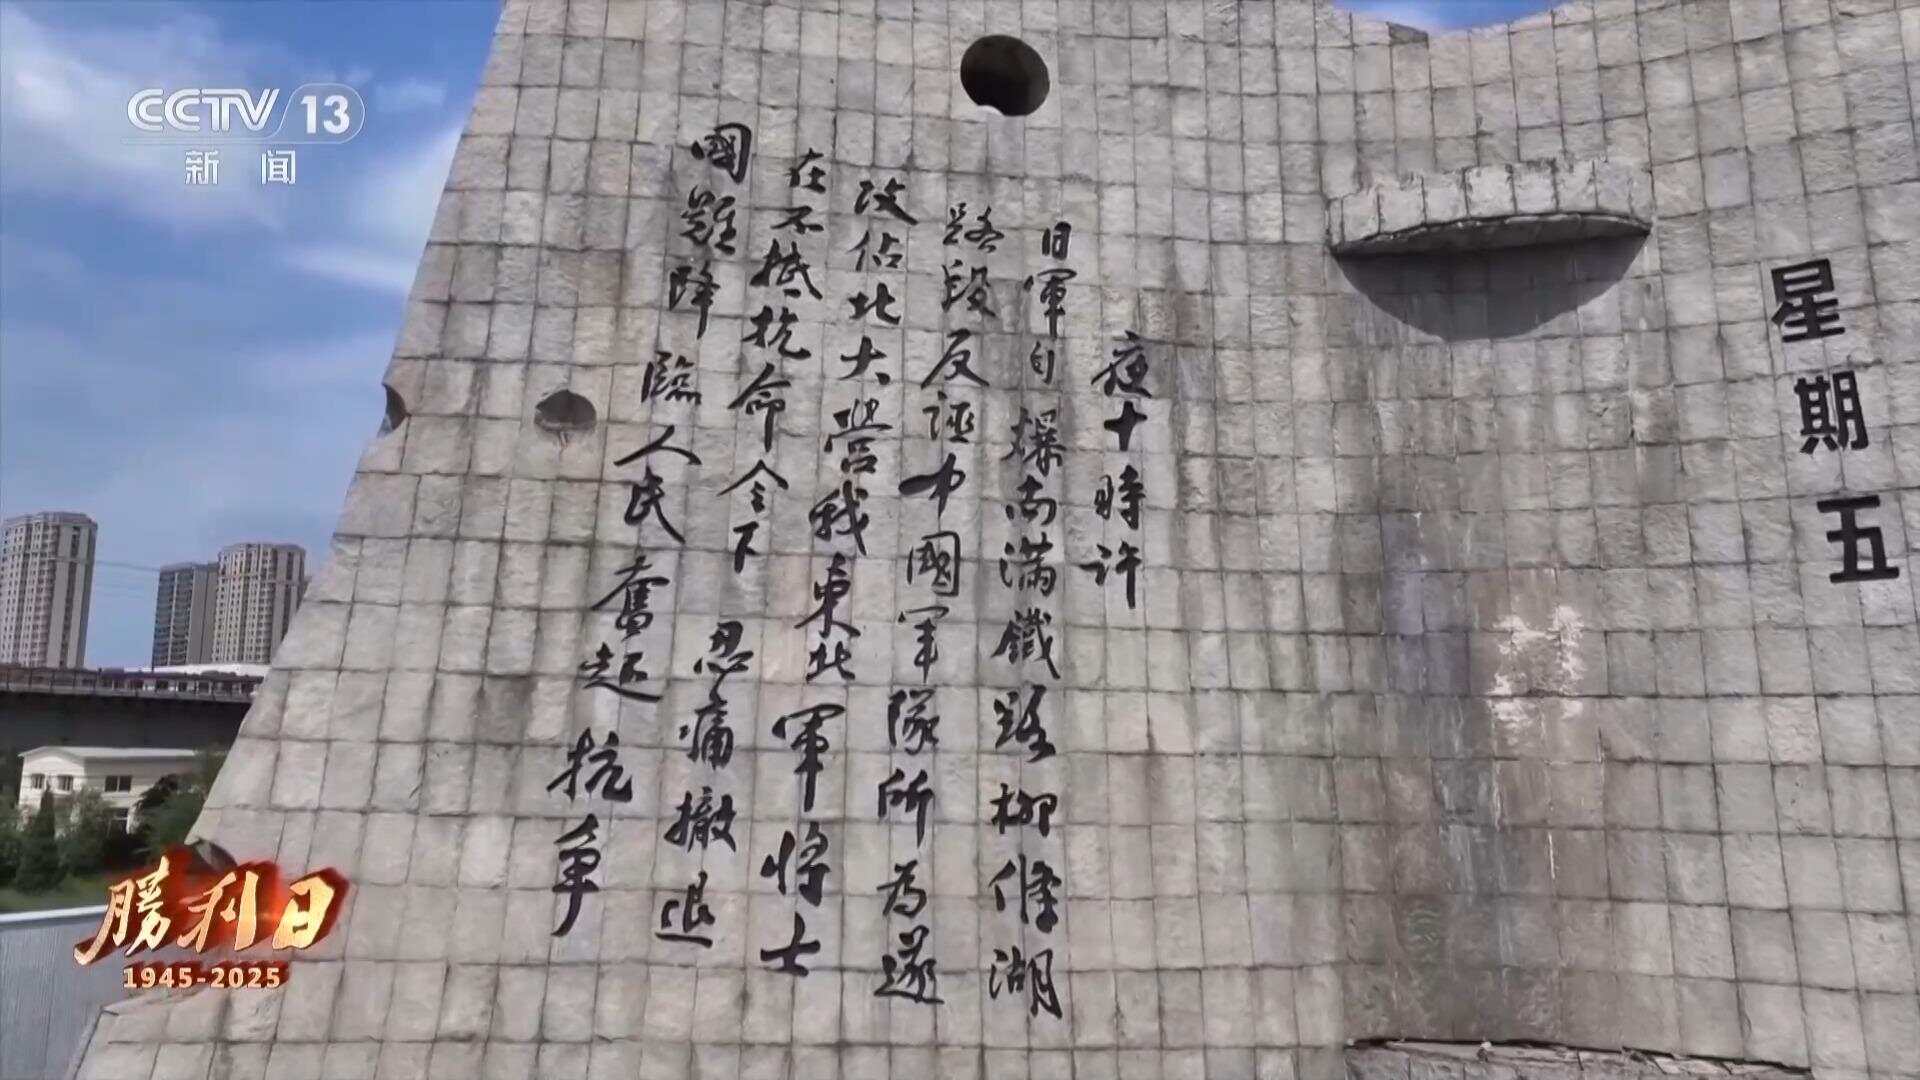 CCTV 13
新闻
星期五
夜十時許
日軍自爆南滿鐵路柳條湖
路段反誣中國軍隊所為遂
攻佔北大營我東北軍將士
在不抵抗命令下忍痛撤退
國難降臨人民奮起抗爭
勝利日
1945-2025